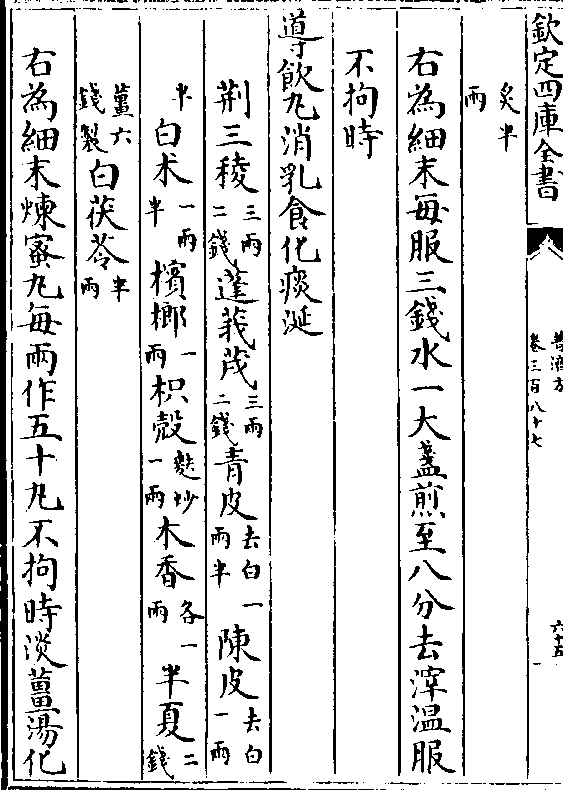 欽定四庫全書
普濟方
卷三百八十七
六十五
炙半兩
右為細末每服三錢水一大盞煎至八分去滓温服
不拘時
導飲丸消乳食化痰涎
荆三稜三兩二錢蓬莪茂三兩二錢青皮去白一兩半陳皮去白一兩
半白术一兩半檳榔一兩枳殼麩炒一兩木香各一兩半夏二錢
薑六錢製白茯苓半兩
右為細末煉蜜丸每兩作五十丸不拘時淡薑湯化